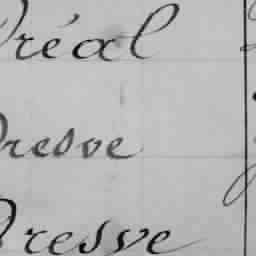 Dréal
Dresve
Dresve